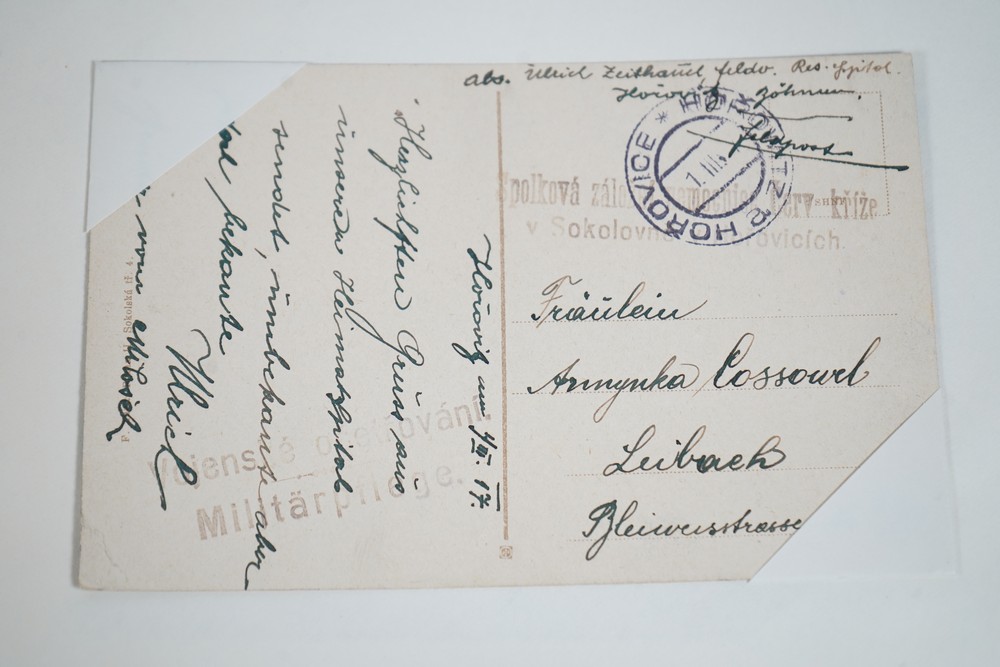 Abs. Ulrich Zeithaml, feldw. Res. Spital.
Hořovitz Böhmen.
Feldpost
* HOŘOWITZ 2 HOŘOVICE
1.III.
Spolková nemocnice Červ. kříže
v Sokolovně Hořovicích.
Fräulein
Annynka Cossowel
Leibach
Bleiweisstrasse
Hořovitz am 1/III. 17.
Herzlichsten Gruss aus
unserem Heimatspital
sendet, unbekanter aber
bekante
Ulrich
von
Vojenské ošetřování.
Militärpflege.
Sokolská tř. 4.